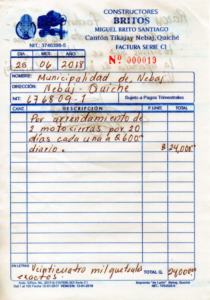 CONSTRUCTORES
BRITOS
MIGUEL BRITO SANTIAGO
Cantón Tikajay Nebaj, Quiché
NIT.: 3746398-5
FACTURA SERIE C1
DIA MES AÑO
26 06 2018
Nº 000019
NOMBRE:
Municipalidad de Nebaj
DIRECCIÓN:
Nebaj - Quiche
NIT: 676809-1
Sujeto a Pagos Trimestrales
CANT. DESCRIPCIÓN
Por arrendamiento de
2 motocierras por 20
dias cada una a Q600.00
diario. Q 24,000.00
EN LETRAS:
Veinticuatro mil quetzales
exactos.
TOTAL Q. 24000.00